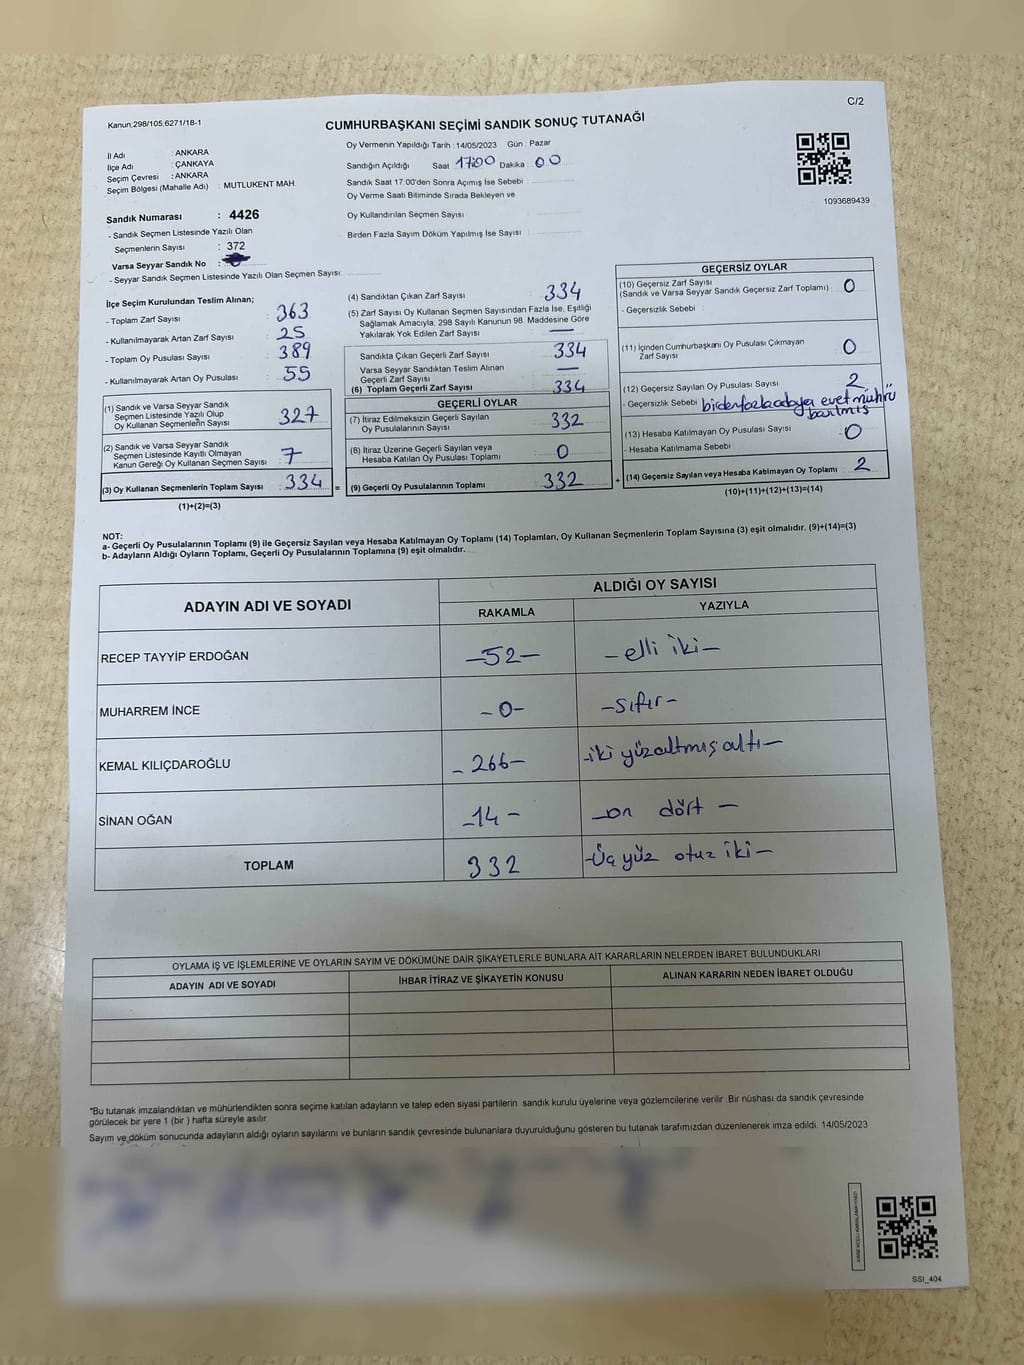 Kanun,298/105,6271/18-1
C/2
CUMHURBAŞKANI SEÇİMİ SANDIK SONUÇ TUTANAĞI
İl Adı : ANKARA
İlçe Adı : ÇANKAYA
Seçim Çevresi : ANKARA
Seçim Bölgesi (Mahalle Adı) : MUTLUKENT MAH.
Oy Vermenin Yapıldığı Tarih : 14/05/2023 Gün : Pazar
Sandığın Açıldığı Saat 17:00 Dakika : 00
Sandık Saat 17:00'den Sonra Açımış İse Sebebi :
Oy Verme Saati Bitiminde Sırada Bekleyen ve
Oy Kullandırılan Seçmen Sayısı :
Birden Fazla Sayım Döküm Yapılmış İse Sayısı :
1093689439
Sandık Numarası : 4426
- Sandık Seçmen Listesinde Yazılı Olan
Seçmenlerin Sayısı : 372
Varsa Seyyar Sandık No :
- Seyyar Sandık Seçmen Listesinde Yazılı Olan Seçmen Sayısı:
İlçe Seçim Kurulundan Teslim Alınan;
- Toplam Zarf Sayısı : 363
- Kullanılmayarak Artan Zarf Sayısı : 25
- Toplam Oy Pusulası Sayısı : 389
- Kullanılmayarak Artan Oy Pusulası : 55
(1) Sandık ve Varsa Seyyar Sandık
Seçmen Listesinde Yazılı Olup
Oy Kullanan Seçmenlerin Sayısı : 327
(2) Sandık ve Varsa Seyyar Sandık
Seçmen Listesinde Kayıtlı Olmayan
Kanun Gereği Oy Kullanan Seçmen Sayısı : 7
(3) Oy Kullanan Seçmenlerin Toplam Sayısı : 334 =
(1)+(2)=(3)
(4) Sandıktan Çıkan Zarf Sayısı : 334
(5) Zarf Sayısı Oy Kullanan Seçmen Sayısından Fazla İse, Eşitliği
Sağlamak Amacıyla, 298 Sayılı Kanunun 98. Maddesine Göre
Yakılarak Yok Edilen Zarf Sayısı : —
Sandıkta Çıkan Geçerli Zarf Sayısı : 334
Varsa Seyyar Sandıktan Teslim Alınan
Geçerli Zarf Sayısı : —
(6) Toplam Geçerli Zarf Sayısı : 334
GEÇERLİ OYLAR
(7) İtiraz Edilmeksizin Geçerli Sayılan
Oy Pusulalarının Sayısı : 332
(8) İtiraz Üzerine Geçerli Sayılan veya
Hesaba Katılan Oy Pusulası Toplamı : 0
(9) Geçerli Oy Pusulalarının Toplamı : 332 +
GEÇERSİZ OYLAR
(10) Geçersiz Zarf Sayısı
(Sandık ve Varsa Seyyar Sandık Geçersiz Zarf Toplamı) : 0
- Geçersizlik Sebebi :
(11) İçinden Cumhurbaşkanı Oy Pusulası Çıkmayan
Zarf Sayısı : 0
(12) Geçersiz Sayılan Oy Pusulası Sayısı : 2
- Geçersizlik Sebebi : birden fazla adaya evet mührü
basılmış
(13) Hesaba Katılmayan Oy Pusulası Sayısı : 0
- Hesaba Katılmama Sebebi :
(14) Geçersiz Sayılan veya Hesaba Katılmayan Oy Toplamı : 2
(10)+(11)+(12)+(13)=(14)
NOT:
a- Geçerli Oy Pusulalarının Toplamı (9) ile Geçersiz Sayılan veya Hesaba Katılmayan Oy Toplamı (14) Toplamları, Oy Kullanan Seçmenlerin Toplam Sayısına (3) eşit olmalıdır. (9)+(14)=(3)
b- Adayların Aldığı Oyların Toplamı, Geçerli Oy Pusulalarının Toplamına (9) eşit olmalıdır.
ADAYIN ADI VE SOYADI
ALDIĞI OY SAYISI
RAKAMLA YAZIYLA
RECEP TAYYİP ERDOĞAN -52- -elli iki-
MUHARREM İNCE -0- -sıfır-
KEMAL KILIÇDAROĞLU -266- -iki yüzaltmış altı-
SİNAN OĞAN -14- -on dört-
TOPLAM 332 -Üç yüz otuz iki-
OYLAMA İŞ VE İŞLEMLERİNE VE OYLARIN SAYIM VE DÖKÜMÜNE DAİR ŞİKAYETLERLE BUNLARA AİT KARARLARIN NELERDEN İBARET BULUNDUKLARI
ADAYIN ADI VE SOYADI İHBAR İTİRAZ VE ŞİKAYETİN KONUSU ALINAN KARARIN NEDEN İBARET OLDUĞU
*Bu tutanak imzalandıktan ve mühürlendikten sonra seçime katılan adayların ve talep eden siyasi partilerin sandık kurulu üyelerine veya gözlemcilerine verilir. Bir nüshası da sandık çevresinde
görülecek bir yere 1 (bir ) hafta süreyle asılır.
Sayım ve döküm sonucunda adayların aldığı oyların sayılarını ve bunların sandık çevresinde bulunanlara duyurulduğunu gösteren bu tutanak tarafımızdan düzenlenerek imza edildi. 14/05/2023
SSI_404